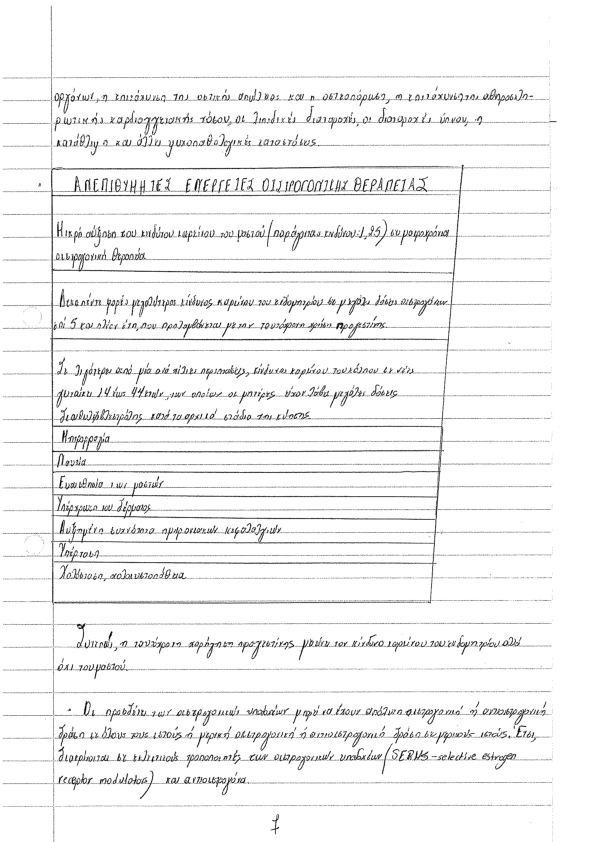 οργάνων, η επιτάχυνση της οστικής απώλειας και η οστεοπόρωση, η επιτάχυνση της αθηροσκλη-
ρωτικής καρδιαγγειακής νόσου, οι λιπιδικές διαταραχές, οι διαταραχές ύπνου, η
κατάθλιψη και άλλες ψυχοπαθολογικές καταστάσεις.
ΑΝΕΠΙΘΥΜΗΤΕΣ ΕΝΕΡΓΕΙΕΣ ΟΙΣΤΡΟΓΟΝΙΚΗΣ ΘΕΡΑΠΕΙΑΣ
Μικρή αύξηση του κινδύνου καρκίνου του μαστού (παράγοντας κινδύνου: 1,25) σε μακροχρόνια
οιστρογονική θεραπεία
Δεκαπέντε φορές μεγαλύτερος κίνδυνος καρκίνου του ενδομητρίου σε μεγάλες δόσεις οιστρογόνων
επί 5 και πλέον έτη, που προλαμβάνεται με την ταυτόχρονη χρήση προγεστίνης.
Σε λιγότερες από μία ανά χίλιες περιπτώσεις, κίνδυνος καρκίνου του κόλπου σε νέες
γυναίκες 14 έως 44 ετών, των οποίων οι μητέρες είχαν λάβει μεγάλες δόσεις
διαιθυλστιλβεστρόλης κατά τα αρχικά στάδια της κύησης.
Μητρορραγία
Ναυτία
Ευαισθησία των μαστών
Υπέρχρωση του δέρματος
Αυξημένη συχνότητα ημικρανιακών κεφαλαλγιών
Υπέρταση
Χολόσταση, χολοκυστοπάθεια
Συνεπώς, η ταυτόχρονη χορήγηση προγεστίνης μειώνει τον κίνδυνο καρκίνου του ενδομητρίου αλλά
όχι του μαστού.
- Οι προσδέτες των οιστρογονικών υποδοχέων μπορεί να έχουν απόλυτη οιστρογονική ή αντιοιστρογονική
δράση σε όλους τους ιστούς ή μερική οιστρογονική ή αντιοιστρογονική δράση σε μερικούς ιστούς. Έτσι,
διακρίνονται σε εκλεκτικούς τροποποιητές των οιστρογονικών υποδοχέων (SERMS - selective estrogen
receptor modulators) και αντιοιστρογόνα.
7